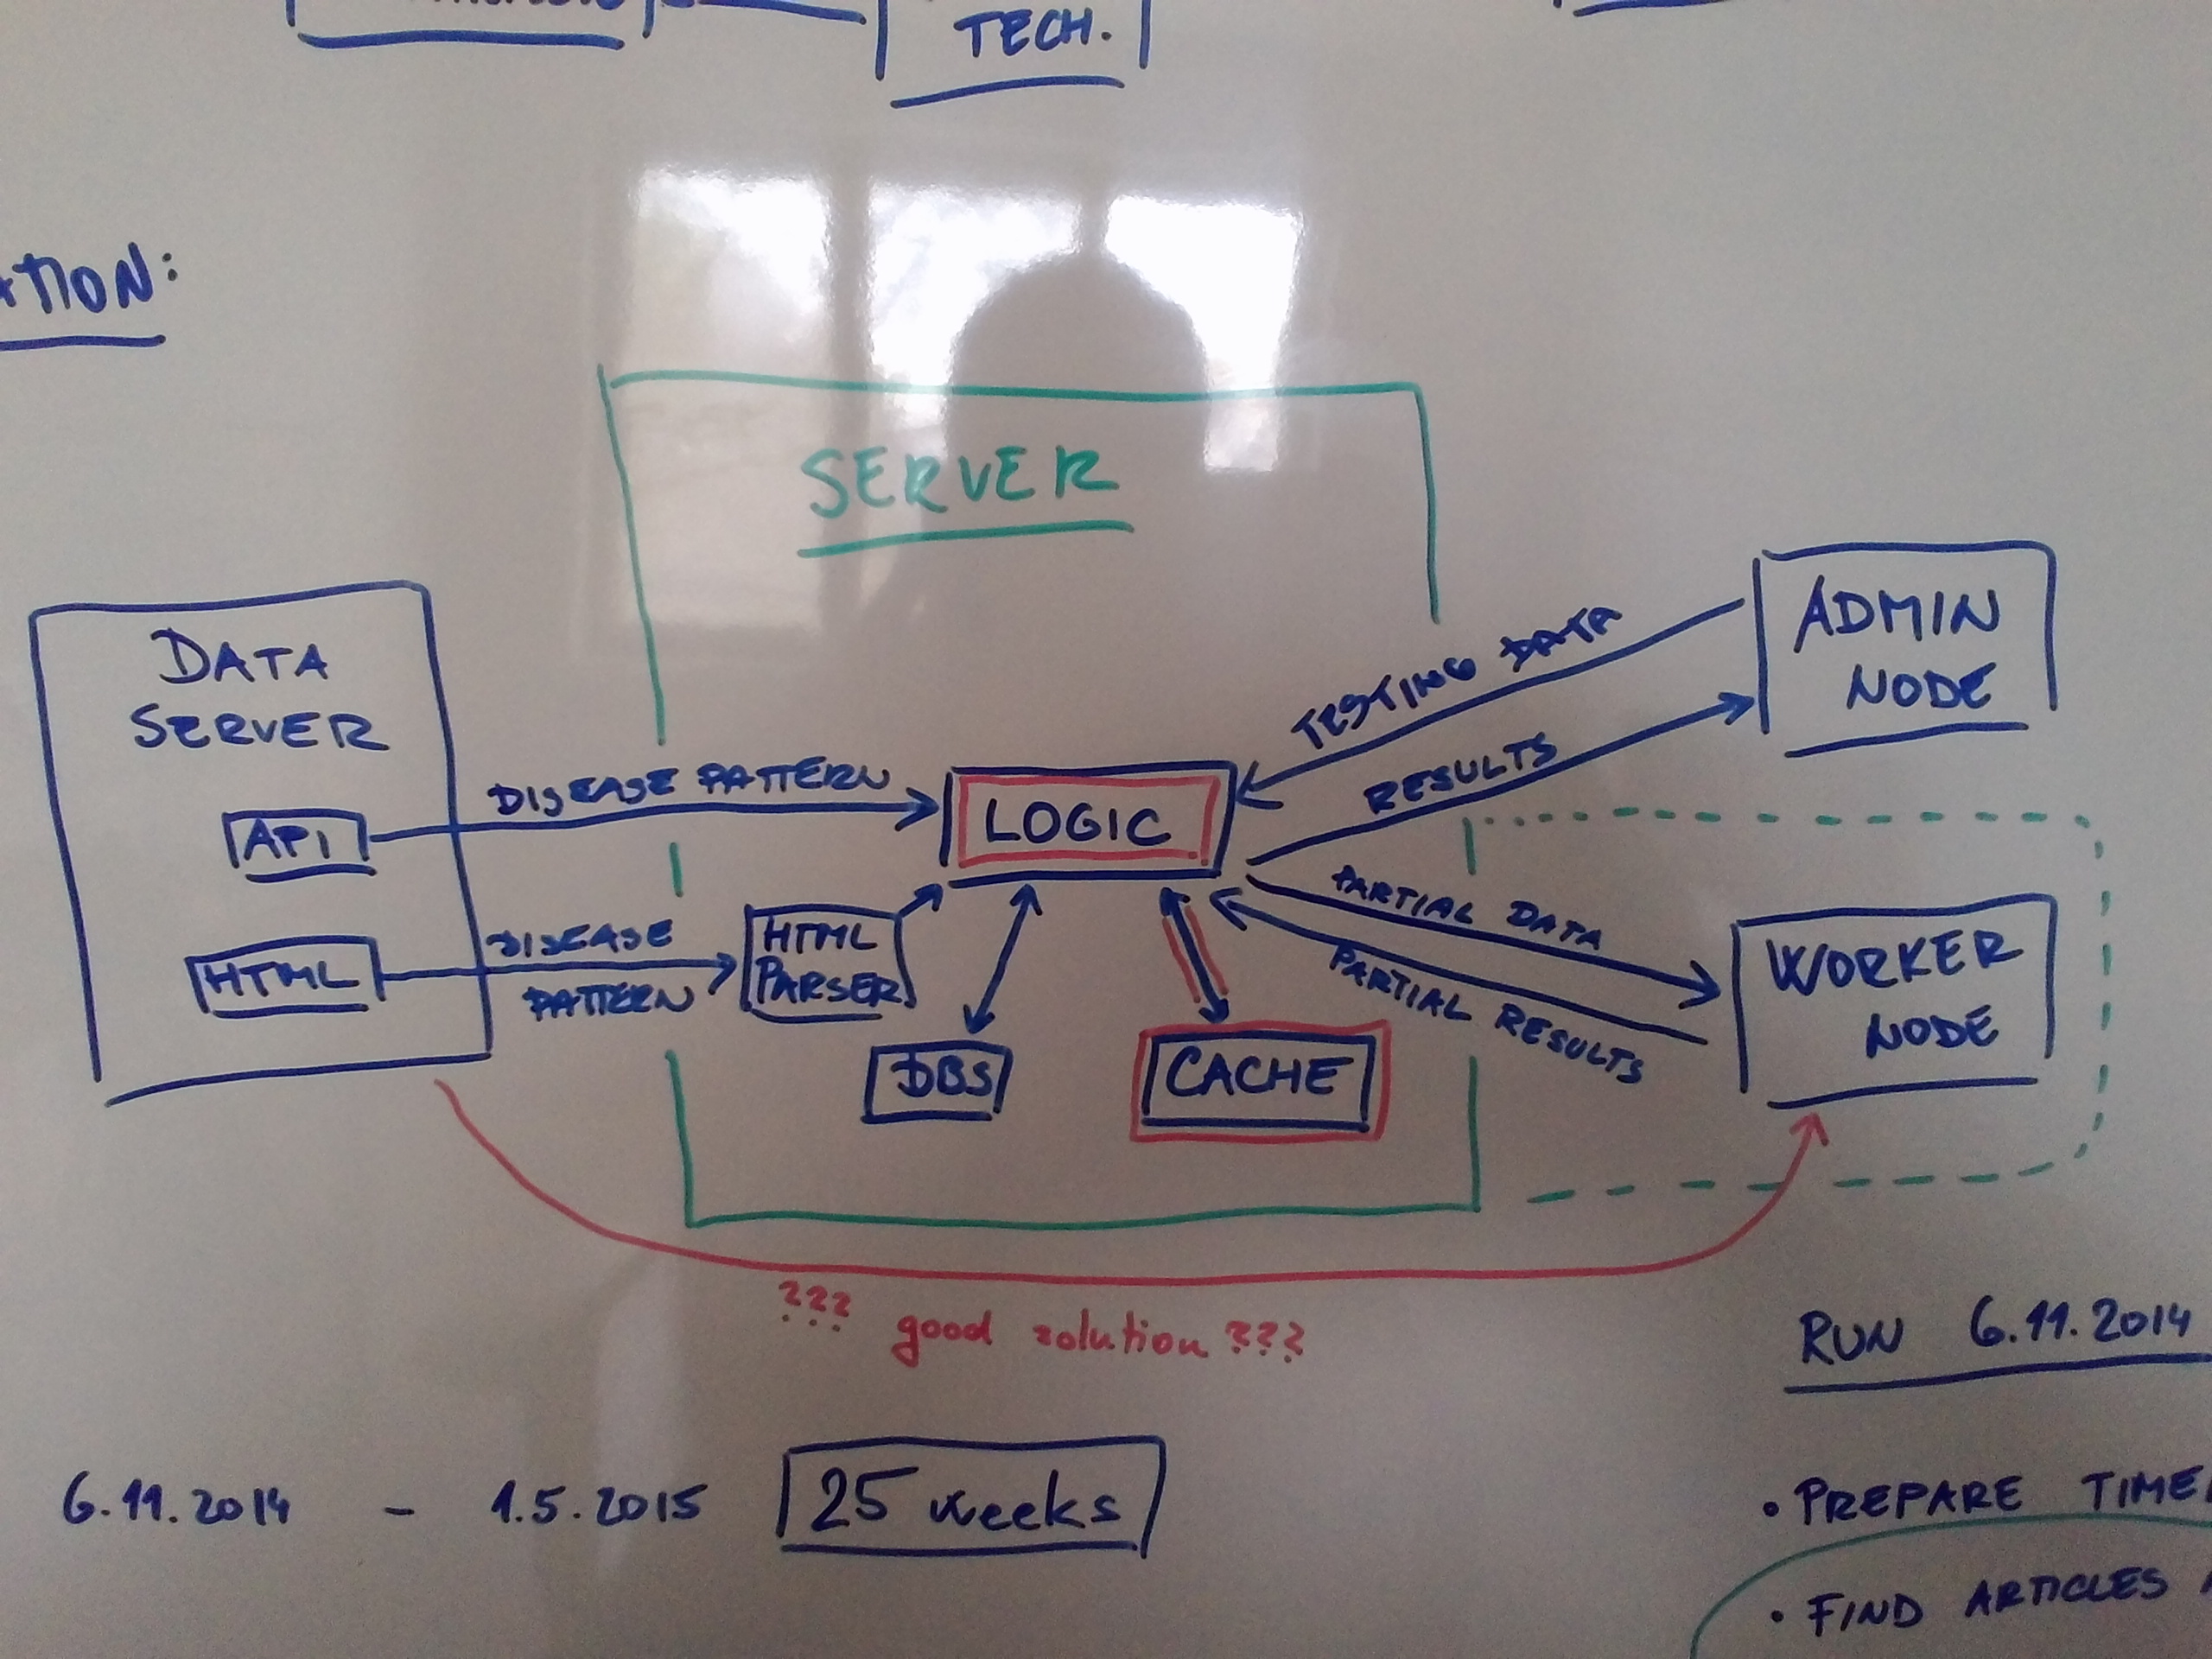 TECH.
ATION:
SERVER
DATA
SERVER
API
HTML
DISEASE PATTERN
DISEASE
PATTERN
HTML
PARSER
LOGIC
DBS
CACHE
TESTING DATA
RESULTS
PARTIAL DATA
PARTIAL RESULTS
ADMIN
NODE
WORKER
NODE
??? good solution ???
RUN 6.11.2014
6.11.2014 - 1.5.2015 25 weeks
• PREPARE TIME
• FIND ARTICLES